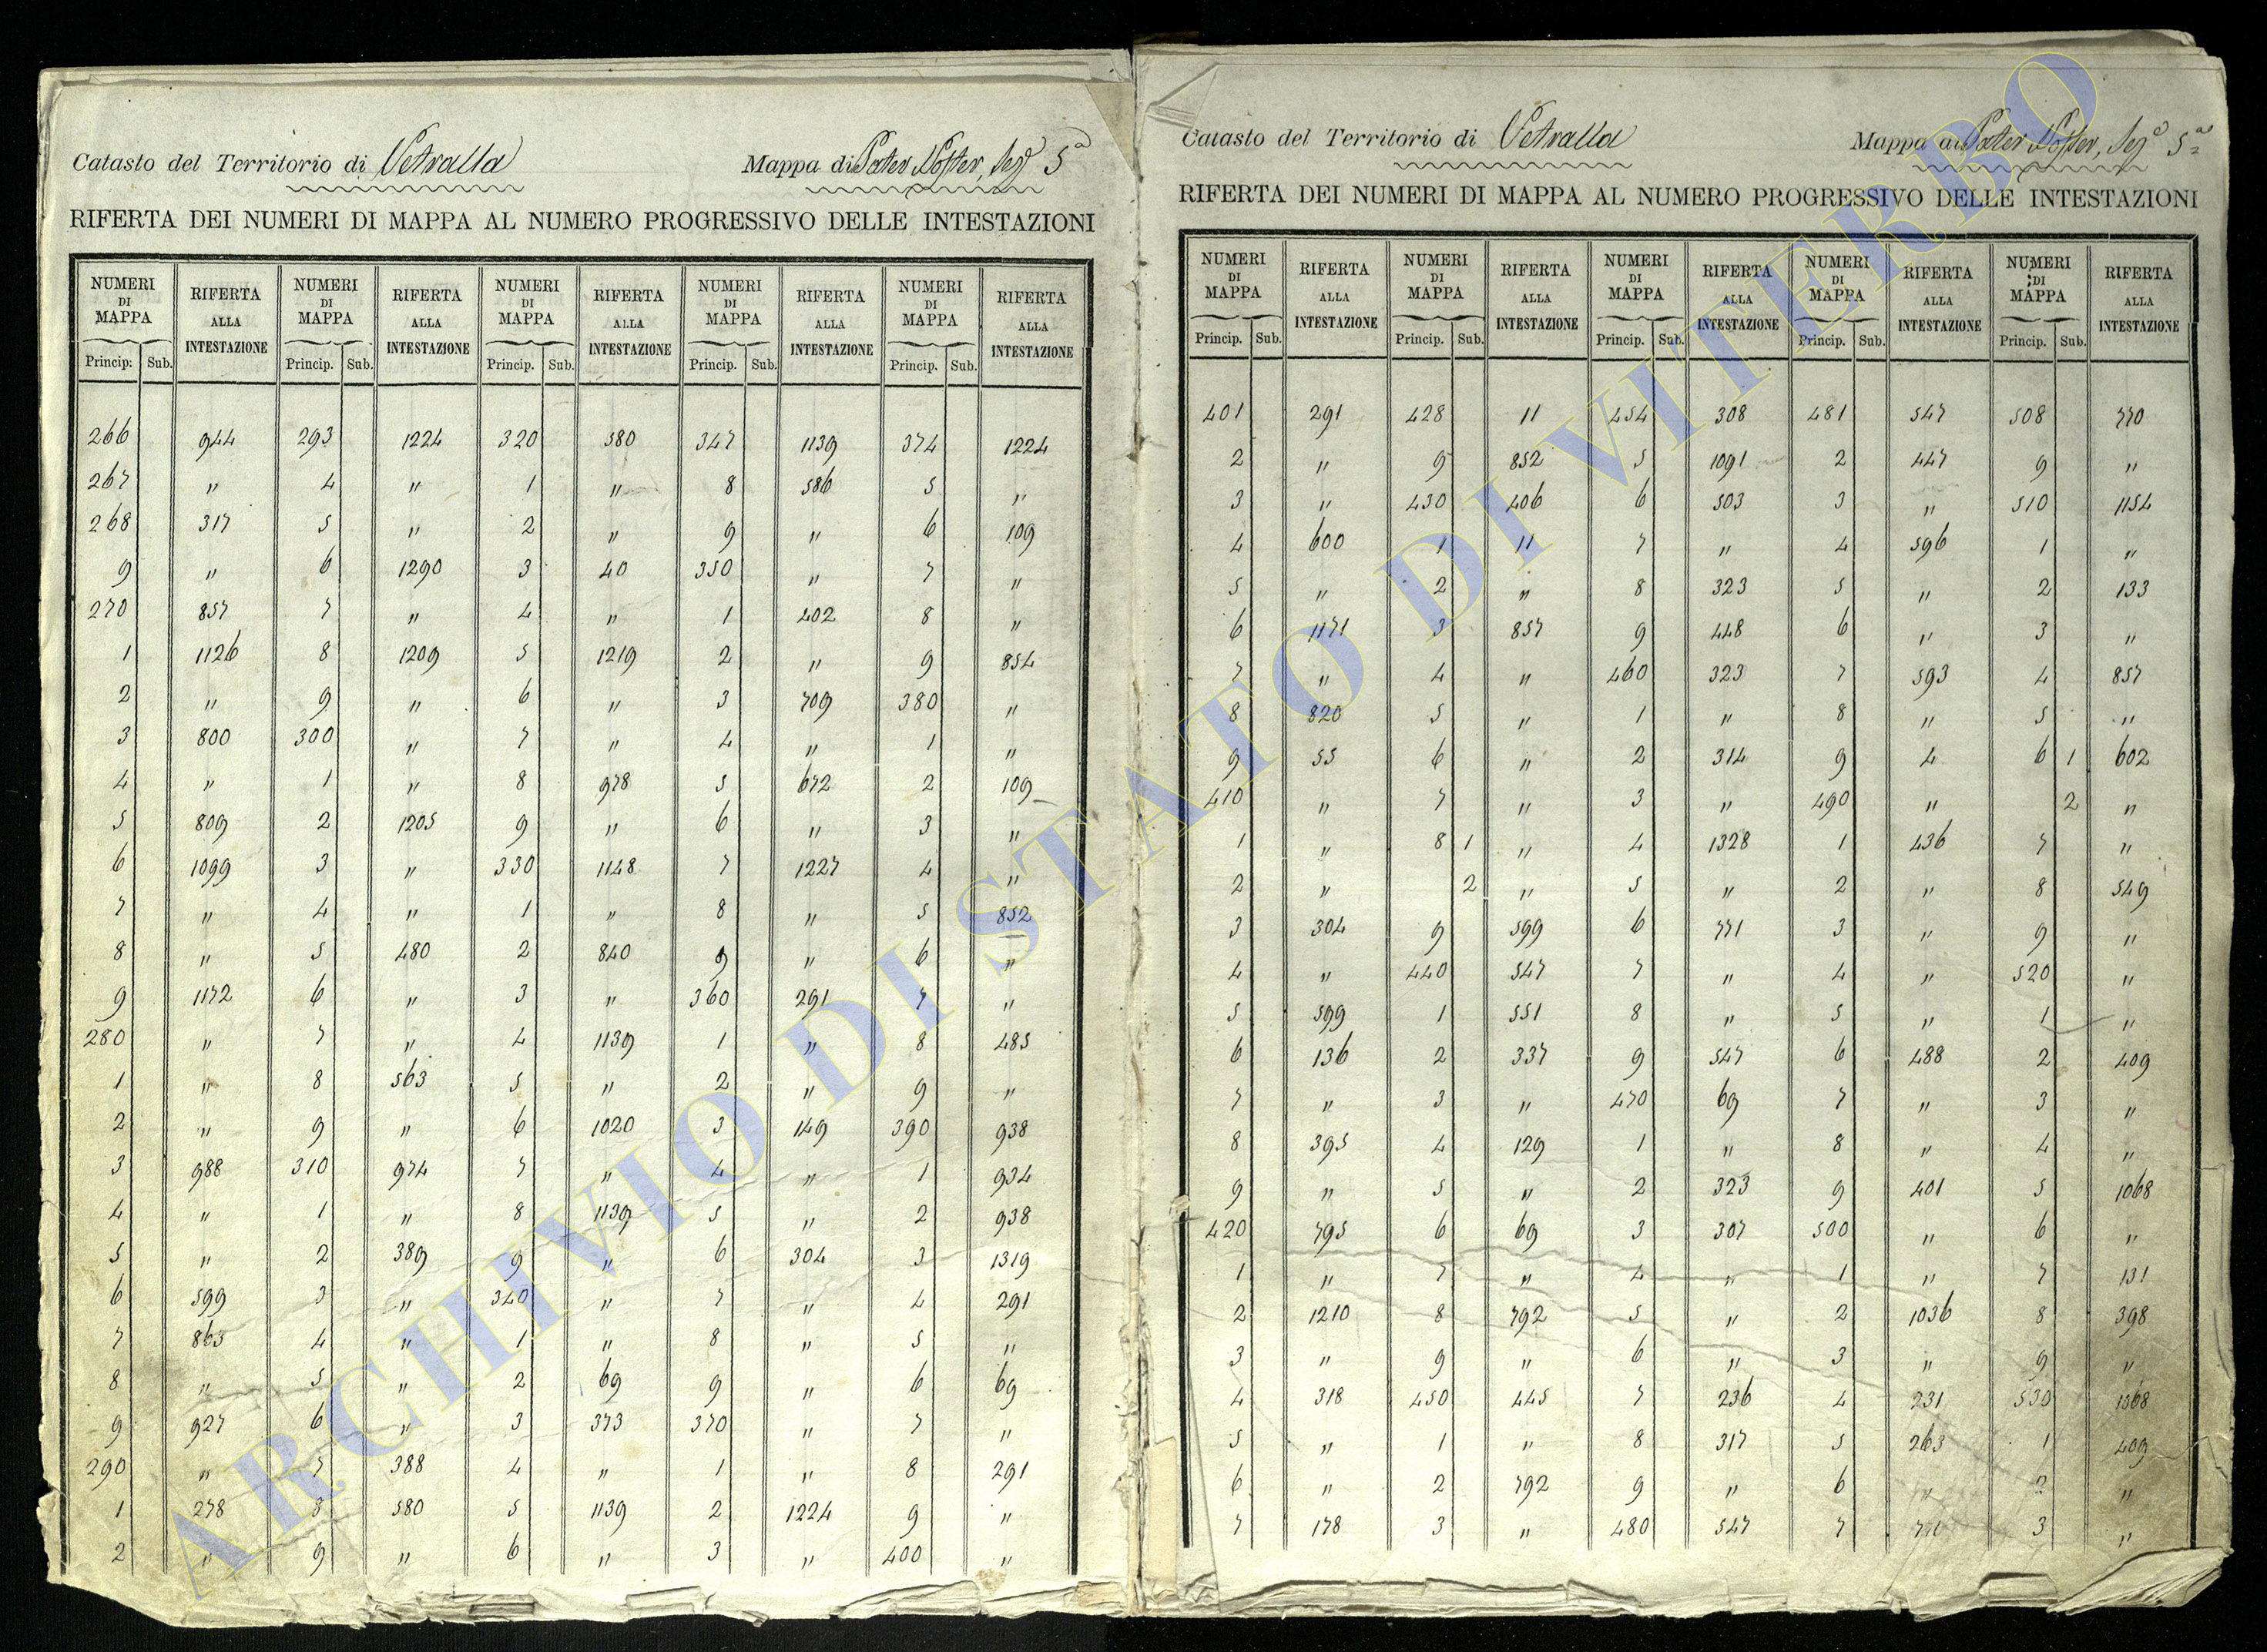 Catasto del Territorio di Vetralla Mappa di Pater Noster, Sez.e 5a
RIFERTA DEI NUMERI DI MAPPA AL NUMERO PROGRESSIVO DELLE INTESTAZIONI
NUMERI DI MAPPA RIFERTA ALLA INTESTAZIONE NUMERI DI MAPPA RIFERTA ALLA INTESTAZIONE NUMERI DI MAPPA RIFERTA ALLA INTESTAZIONE NUMERI DI MAPPA RIFERTA ALLA INTESTAZIONE NUMERI DI MAPPA RIFERTA ALLA INTESTAZIONE
Princip. Sub. Princip. Sub. Princip. Sub. Princip. Sub. Princip. Sub.
266 944 293 1224 320 580 347 1139 374 1224
267 " 4 " 1 " 8 586 5 "
268 317 5 " 2 " 9 " 6 109
9 " 6 1290 3 40 350 " 7 "
270 857 7 " 4 " 1 402 8 "
1 1126 8 1209 5 1219 2 " 9 854
2 " 9 " 6 " 3 709 380 "
3 800 300 " 7 " 4 " 1 "
4 " 1 " 8 978 5 672 2 109
5 809 2 1205 9 " 6 " 3 "
6 1099 3 " 330 1148 7 1227 4 "
7 " 4 " 1 " 8 " 5 852
8 " 5 480 2 840 9 " 6 "
9 1172 6 " 3 " 360 291 7 "
280 " 7 " 4 1139 1 " 8 485
1 " 8 563 5 " 2 " 9 "
2 " 9 " 6 1020 3 149 390 938
3 988 310 974 7 " 4 " 1 934
4 " 1 " 8 1139 5 " 2 938
5 " 2 389 9 " 6 304 3 1319
6 599 3 " 340 " 7 " 4 291
7 863 4 " 1 " 8 " 5 "
8 " 5 " 2 69 9 " 6 69
9 927 6 " 3 373 370 " 7 "
290 " 7 388 4 " 1 " 8 291
1 278 8 580 5 1139 2 1224 9 "
2 " 9 " 6 " 3 " 400 "
Catasto del Territorio di Vetralla Mappa di Pater Noster, Sez.e 5a
RIFERTA DEI NUMERI DI MAPPA AL NUMERO PROGRESSIVO DELLE INTESTAZIONI
NUMERI DI MAPPA RIFERTA ALLA INTESTAZIONE NUMERI DI MAPPA RIFERTA ALLA INTESTAZIONE NUMERI DI MAPPA RIFERTA ALLA INTESTAZIONE NUMERI DI MAPPA RIFERTA ALLA INTESTAZIONE NUMERI DI MAPPA RIFERTA ALLA INTESTAZIONE
Princip. Sub. Princip. Sub. Princip. Sub. Princip. Sub. Princip. Sub.
401 291 428 11 454 308 481 547 508 770
2 " 9 852 5 1091 2 447 9 "
3 " 430 406 6 503 3 " 510 1154
4 600 1 11 7 " 4 596 1 "
5 " 2 " 8 323 5 " 2 133
6 1171 3 857 9 448 6 " 3 "
7 " 4 " 460 323 7 593 4 857
8 820 5 " 1 " 8 " 5 "
9 55 6 " 2 314 9 4 6 1 602
410 " 7 " 3 " 490 " 2 "
1 " 8 1 " 4 1328 1 436 7 "
2 " 2 " 5 " 2 " 8 549
3 304 9 599 6 771 3 " 9 "
4 " 440 547 7 " 4 " 520 "
5 599 1 551 8 " 5 " 1 "
6 136 2 337 9 547 6 488 2 409
7 " 3 " 470 69 7 " 3 "
8 395 4 129 1 " 8 " 4 "
9 " 5 " 2 323 9 401 5 1068
420 795 6 69 3 307 500 " 6 "
1 " 7 " 4 " 1 " 7 131
2 1210 8 792 5 " 2 1036 8 398
3 " 9 " 6 " 3 " 9 "
4 318 450 445 7 236 4 231 530 1368
5 " 1 " 8 317 5 263 1 409
6 " 2 792 9 " 6 " 2 "
7 178 3 " 480 547 7 3 "
ARCHIVIO DI STATO DI VITERBO